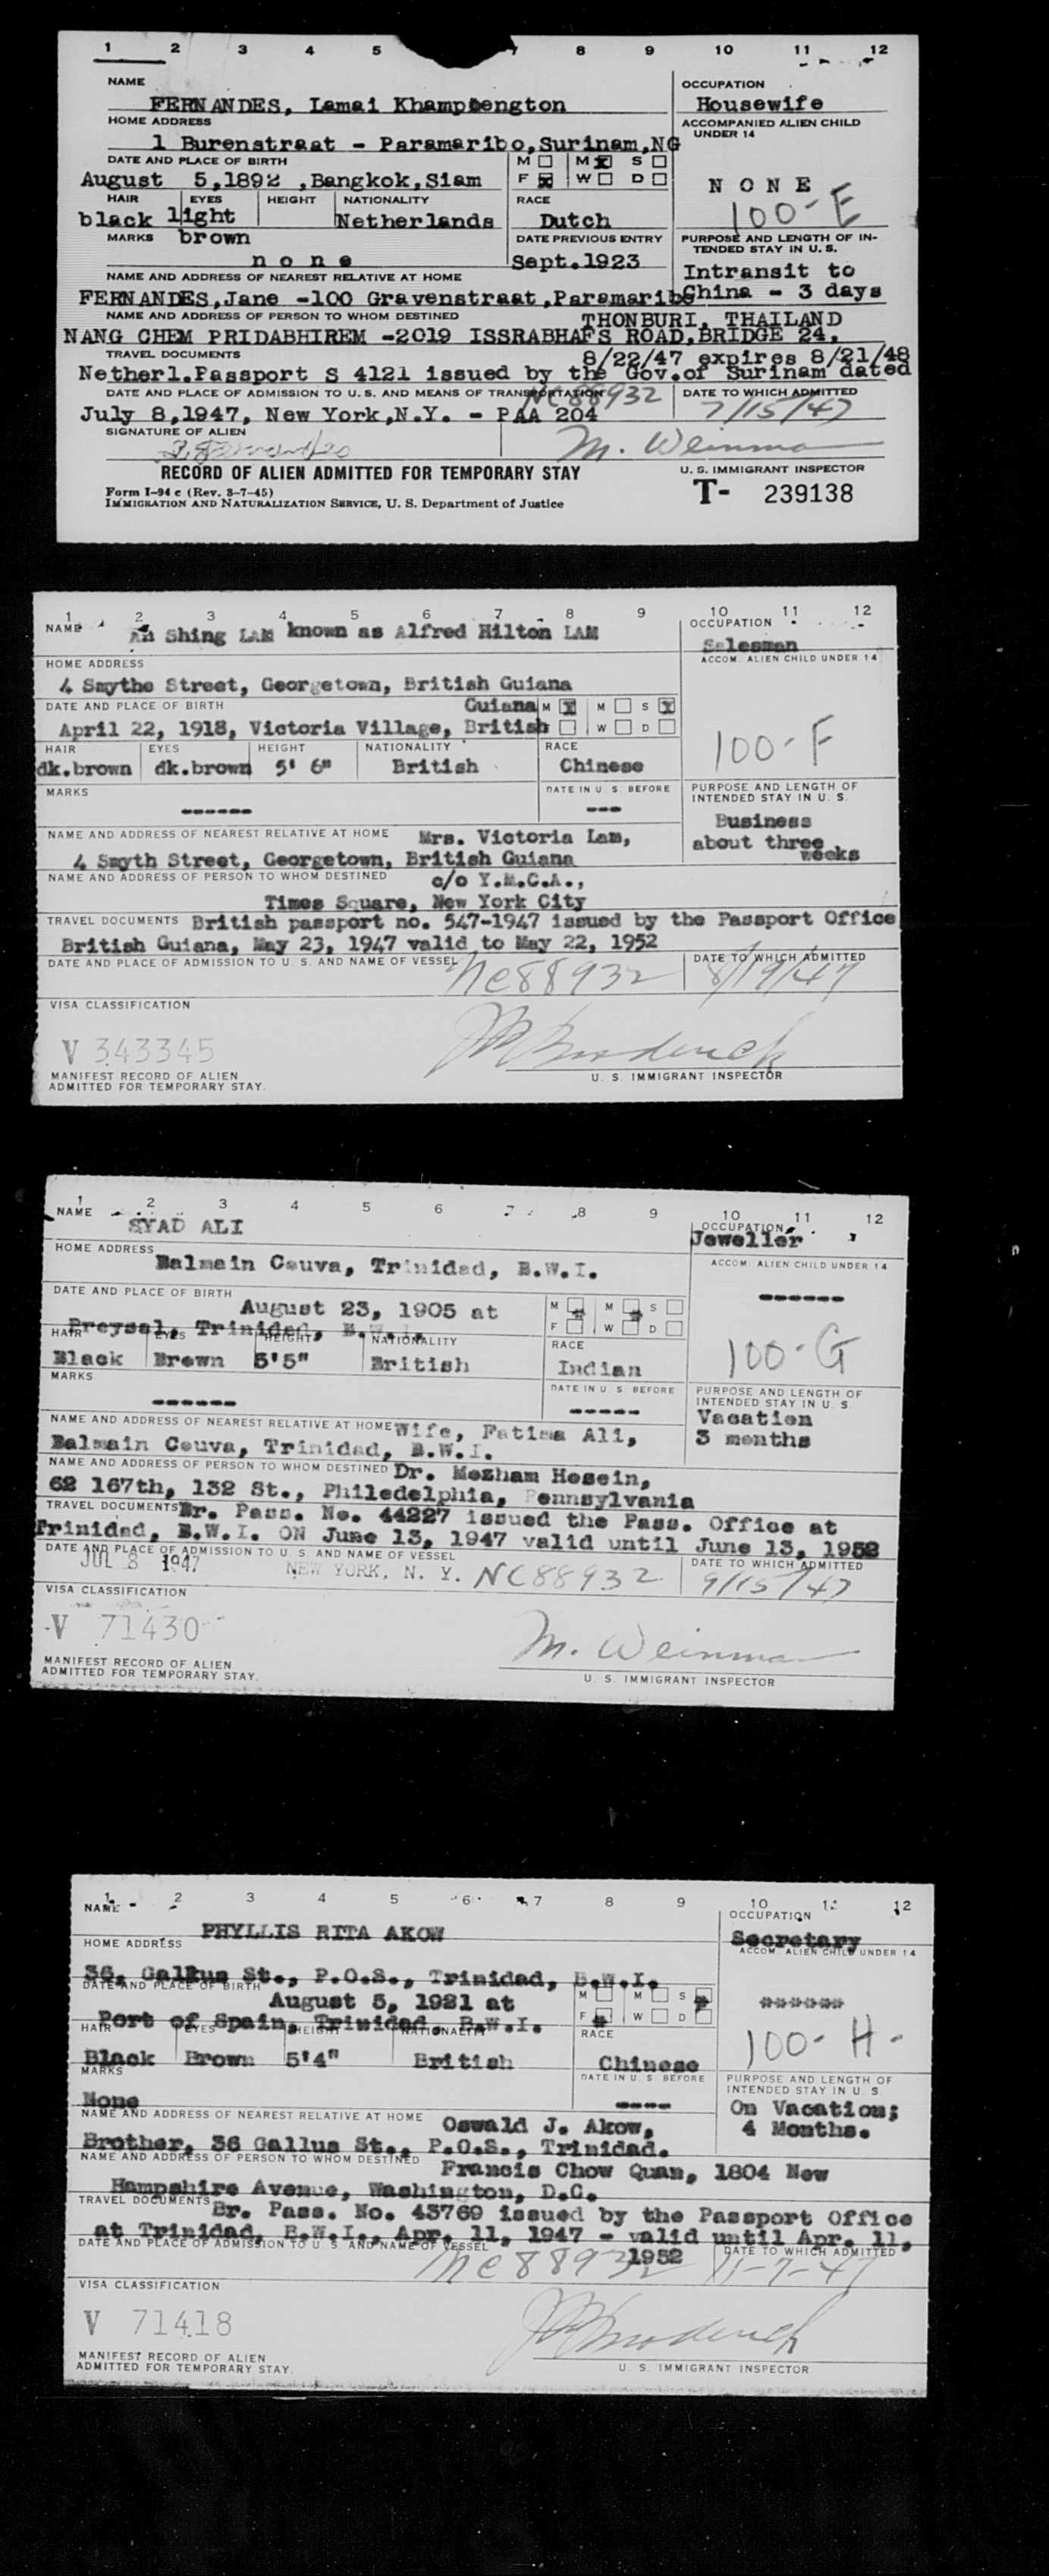 1 2 3 4 5 7 8 9 10 11 12
NAME OCCUPATION
FERNANDES, Lamai Khamphengton Housewife
HOME ADDRESS ACCOMPANIED ALIEN CHILD UNDER 14
1 Burenstraat - Paramaribo,Surinam,NG
DATE AND PLACE OF BIRTH M M S
August 5,1892 ,Bangkok,Siam F W D N O N E
HAIR EYES HEIGHT NATIONALITY RACE 100-E
black light Netherlands Dutch
MARKS brown DATE PREVIOUS ENTRY PURPOSE AND LENGTH OF IN-
TENDED STAY IN U. S.
n o n e Sept.1923 Intransit to
NAME AND ADDRESS OF NEAREST RELATIVE AT HOME
FERNANDES,Jane -100 Gravenstraat,Paramaribo China - 3 days
NAME AND ADDRESS OF PERSON TO WHOM DESTINED THONBURI, THAILAND
NANG CHEM PRIDABHIREM -2019 ISSRABHAFS ROAD,BRIDGE 24,
TRAVEL DOCUMENTS 8/22/47 expires 8/21/48
Netherl.Passport S 4121 issued by the Gov.of Surinam dated
DATE AND PLACE OF ADMISSION TO U. S. AND MEANS OF TRANSPORTATION NC88932 DATE TO WHICH ADMITTED
July 8,1947, New York,N.Y. - PAA 204 7/15/47
SIGNATURE OF ALIEN M. Weinman
RECORD OF ALIEN ADMITTED FOR TEMPORARY STAY U. S. IMMIGRANT INSPECTOR
Form I-94 c (Rev. 3-7-45) T- 239138
IMMIGRATION AND NATURALIZATION SERVICE, U. S. Department of Justice
1 2 3 4 5 6 7 8 9 10 11 12
NAME Ah Shing LAM known as Alfred Hilton LAM OCCUPATION
Salesman
HOME ADDRESS ACCOM. ALIEN CHILD UNDER 14
4 Smythe Street, Georgetown, British Guiana
DATE AND PLACE OF BIRTH Guiana M M S
April 22, 1918, Victoria Village, British W D
HAIR EYES HEIGHT NATIONALITY RACE 100-F
dk.brown dk.brown 5' 6" British Chinese
MARKS DATE IN U. S. BEFORE PURPOSE AND LENGTH OF
INTENDED STAY IN U. S.
------ --- Business
NAME AND ADDRESS OF NEAREST RELATIVE AT HOME Mrs. Victoria Lam, about three
weeks
4 Smyth Street, Georgetown, British Guiana
NAME AND ADDRESS OF PERSON TO WHOM DESTINED c/o Y.M.C.A.,
Times Square, New York City
TRAVEL DOCUMENTS British passport no. 547-1947 issued by the Passport Office
British Guiana, May 23, 1947 valid to May 22, 1952
DATE AND PLACE OF ADMISSION TO U. S. AND NAME OF VESSEL NC88932 DATE TO WHICH ADMITTED
8/19/47
VISA CLASSIFICATION
V 343345
MANIFEST RECORD OF ALIEN U. S. IMMIGRANT INSPECTOR
ADMITTED FOR TEMPORARY STAY.
1 2 3 4 5 6 7 8 9 10 11 12
NAME SYAD ALI OCCUPATION
Jeweller
HOME ADDRESS ACCOM. ALIEN CHILD UNDER 14
Balmain Couva, Trinidad, B.W.I.
DATE AND PLACE OF BIRTH ------
August 23, 1905 at M M S
Preysal, Trinidad, B.W.I. F W D
HAIR EYES HEIGHT NATIONALITY RACE 100-G
Black Brown 5'5" British Indian
MARKS DATE IN U. S. BEFORE PURPOSE AND LENGTH OF
INTENDED STAY IN U. S.
------ ----- Vacation
NAME AND ADDRESS OF NEAREST RELATIVE AT HOME Wife, Fatima Ali, 3 months
Balmain Couva, Trinidad, B.W.I.
NAME AND ADDRESS OF PERSON TO WHOM DESTINED Dr. Mozham Hosein,
62 167th, 132 St., Philedelphia, Pennsylvania
TRAVEL DOCUMENTS Br. Pass. No. 44227 issued the Pass. Office at
Trinidad, B.W.I. ON June 13, 1947 valid until June 13, 1952
DATE AND PLACE OF ADMISSION TO U. S. AND NAME OF VESSEL DATE TO WHICH ADMITTED
JUL 8 1947 NEW YORK, N. Y. NC88932 9/15/47
VISA CLASSIFICATION
V 71430 M. Weinman
MANIFEST RECORD OF ALIEN U. S. IMMIGRANT INSPECTOR
ADMITTED FOR TEMPORARY STAY.
1 2 3 4 5 6 7 8 9 10 11 12
NAME OCCUPATION
PHYLLIS RITA AKOW Secretary
HOME ADDRESS ACCOM. ALIEN CHILD UNDER 14
36, Gallus St., P.O.S., Trinidad, B.W.I.
DATE AND PLACE OF BIRTH M M S
August 5, 1921 at ******
Port of Spain, Trinidad, B.W.I. F W D
HAIR EYES HEIGHT NATIONALITY RACE 100-H-
Black Brown 5'4" British Chinese
MARKS DATE IN U. S. BEFORE PURPOSE AND LENGTH OF
INTENDED STAY IN U. S.
None ---- On Vacation;
NAME AND ADDRESS OF NEAREST RELATIVE AT HOME Oswald J. Akow, 4 Months.
Brother, 36 Gallus St., P.O.S., Trinidad.
NAME AND ADDRESS OF PERSON TO WHOM DESTINED Francis Chow Quan, 1804 New
Hampshire Avenue, Washington, D.C.
TRAVEL DOCUMENTS Br. Pass. No. 43769 issued by the Passport Office
at Trinidad, B.W.I., Apr. 11, 1947 - valid until Apr. 11,
DATE AND PLACE OF ADMISSION TO U. S. AND NAME OF VESSEL 1952 DATE TO WHICH ADMITTED
NC88932 11-7-47
VISA CLASSIFICATION
V 71418
MANIFEST RECORD OF ALIEN U. S. IMMIGRANT INSPECTOR
ADMITTED FOR TEMPORARY STAY.